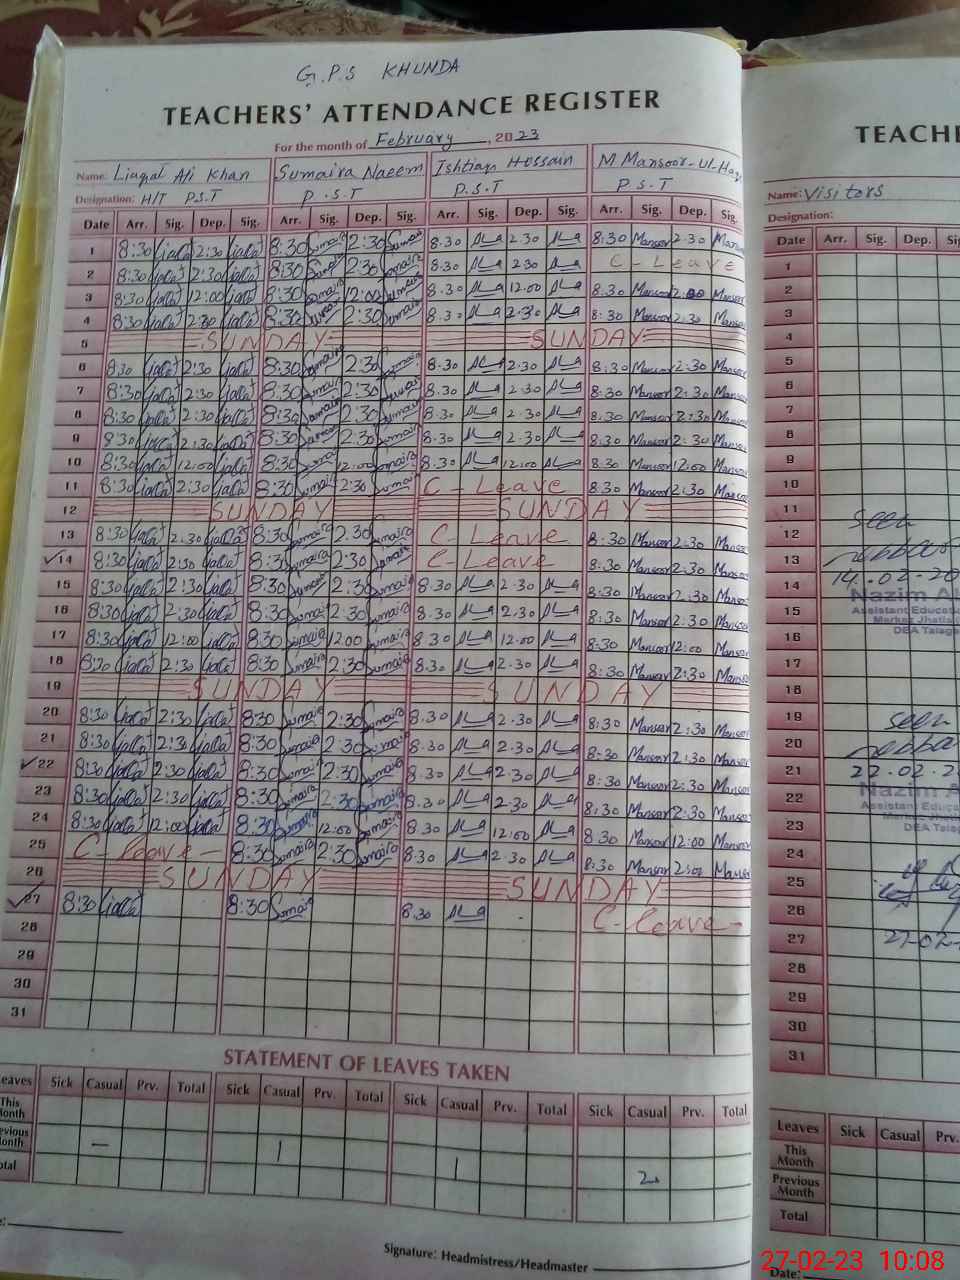 G.P.S KHUNDA
TEACHERS' ATTENDANCE REGISTER
For the month of February, 2023
Name: Liaqat Ali Khan Sumaira Naeem Ishtiaq Hossain M Mansoor-Ul-Haq
Designation: H/T P.S.T P.S.T P.S.T P.S.T
Date Arr. Sig. Dep. Sig. Arr. Sig. Dep. Sig. Arr. Sig. Dep. Sig. Arr. Sig. Dep. Sig.
1 8:30 2:30 8:30 Sumaira 2:30 Sumaira 8.30 2.30 8:30 Mansoor 2:30 Mansoor
2 8:30 2:30 8:30 Sumaira 2:30 Sumaira 8.30 2.30 C-Leave
3 8:30 12:00 8:30 Sumaira 12:00 Sumaira 8.30 12.00 8.30 Mansoor Mansoor
4 8:30 2:30 8:30 Sumaira 2:30 Sumaira 8.30 2.30 8:30 Mansoor 2:30 Mansoor
5 SUNDAY SUNDAY
6 8:30 2:30 8:30 Sumaira 2:30 Sumaira 8.30 2.30 8:30 Mansoor 2:30 Mansoor
7 8:30 2:30 8:30 Sumaira 2:30 Sumaira 8.30 2.30 8:30 Mansoor 2:30 Mansoor
8 8:30 2:30 8:30 Sumaira 2:30 Sumaira 8.30 2.30 8:30 Mansoor 2:30 Mansoor
9 8:30 2:30 8:30 Sumaira 2:30 Sumaira 8.30 2.30 8:30 Mansoor 2:30 Mansoor
10 8:30 12:00 8:30 Sumaira 12:00 Sumaira 8.30 12:00 8.30 Mansoor 12:00 Mansoor
11 8:30 2:30 8:30 Sumaira 2:30 Sumaira C-Leave 8:30 Mansoor 2:30 Mansoor
12 SUNDAY SUNDAY
13 8:30 2:30 8:30 Sumaira 2:30 Sumaira C-Leave 8:30 Mansoor 2:30 Mansoor
✓14 8:30 2:30 8:30 Sumaira 2:30 Sumaira C-Leave 8:30 Mansoor 2:30 Mansoor
15 8:30 2:30 8:30 Sumaira 2:30 Sumaira 8.30 2.30 8:30 Mansoor 2:30 Mansoor
16 8:30 2:30 8:30 Sumaira 2:30 Sumaira 8.30 2.30 8:30 Mansoor 2:30 Mansoor
17 8:30 12:00 8:30 Sumaira 12:00 Sumaira 8.30 12.00 8:30 Mansoor 12:00 Mansoor
18 8:30 2:30 8:30 Sumaira 2:30 Sumaira 8.30 2.30 8:30 Mansoor 2:30 Mansoor
19 SUNDAY SUNDAY
20 8:30 2:30 8:30 Sumaira 2:30 Sumaira 8.30 2.30 8:30 Mansoor 2:30 Mansoor
21 8:30 2:30 8:30 Sumaira 2:30 Sumaira 8.30 2.30 8:30 Mansoor 2:30 Mansoor
✓22 8:30 2:30 8:30 Sumaira 2:30 Sumaira 8.30 2.30 8:30 Mansoor 2:30 Mansoor
23 8:30 2:30 8:30 Sumaira 2:30 Sumaira 8.30 2.30 8:30 Mansoor 2:30 Mansoor
24 8:30 12:00 8:30 Sumaira 12:00 Sumaira 8.30 12:00 8.30 Mansoor 12:00 Mansoor
25 C-leave- 8:30 Sumaira 2:30 Sumaira 8.30 2.30 8:30 Mansoor 2:00 Mansoor
26 SUNDAY SUNDAY
✓27 8:30 8:30 Sumaira 8.30 C-leave-
28
29
30
31
STATEMENT OF LEAVES TAKEN
Leaves Sick Casual Prv. Total Sick Casual Prv. Total Sick Casual Prv. Total Sick Casual Prv. Total
This Month
Previous Month — 1 1 2
Total
Signature: Headmistress/Headmaster
TEACH
Name: Visitors
Designation:
Date Arr. Sig. Dep.
1
2
3
4
5
6
7
8
9
10
11
12 Seen
13
14 14-02-20
Nazim A
15 Assistant Educat
Markaz Jhatla
16 DEA Talag
17
18
19 Seen
20
21 22.02.2
22 Nazim A
Assistant Educa
23 Markaz Jhatla
DEA Talag
24
25
26
27 27-02-
28
29
30
31
Leaves Sick Casual Prv.
This Month
Previous Month
Total
Date:
27-02-23 10:08